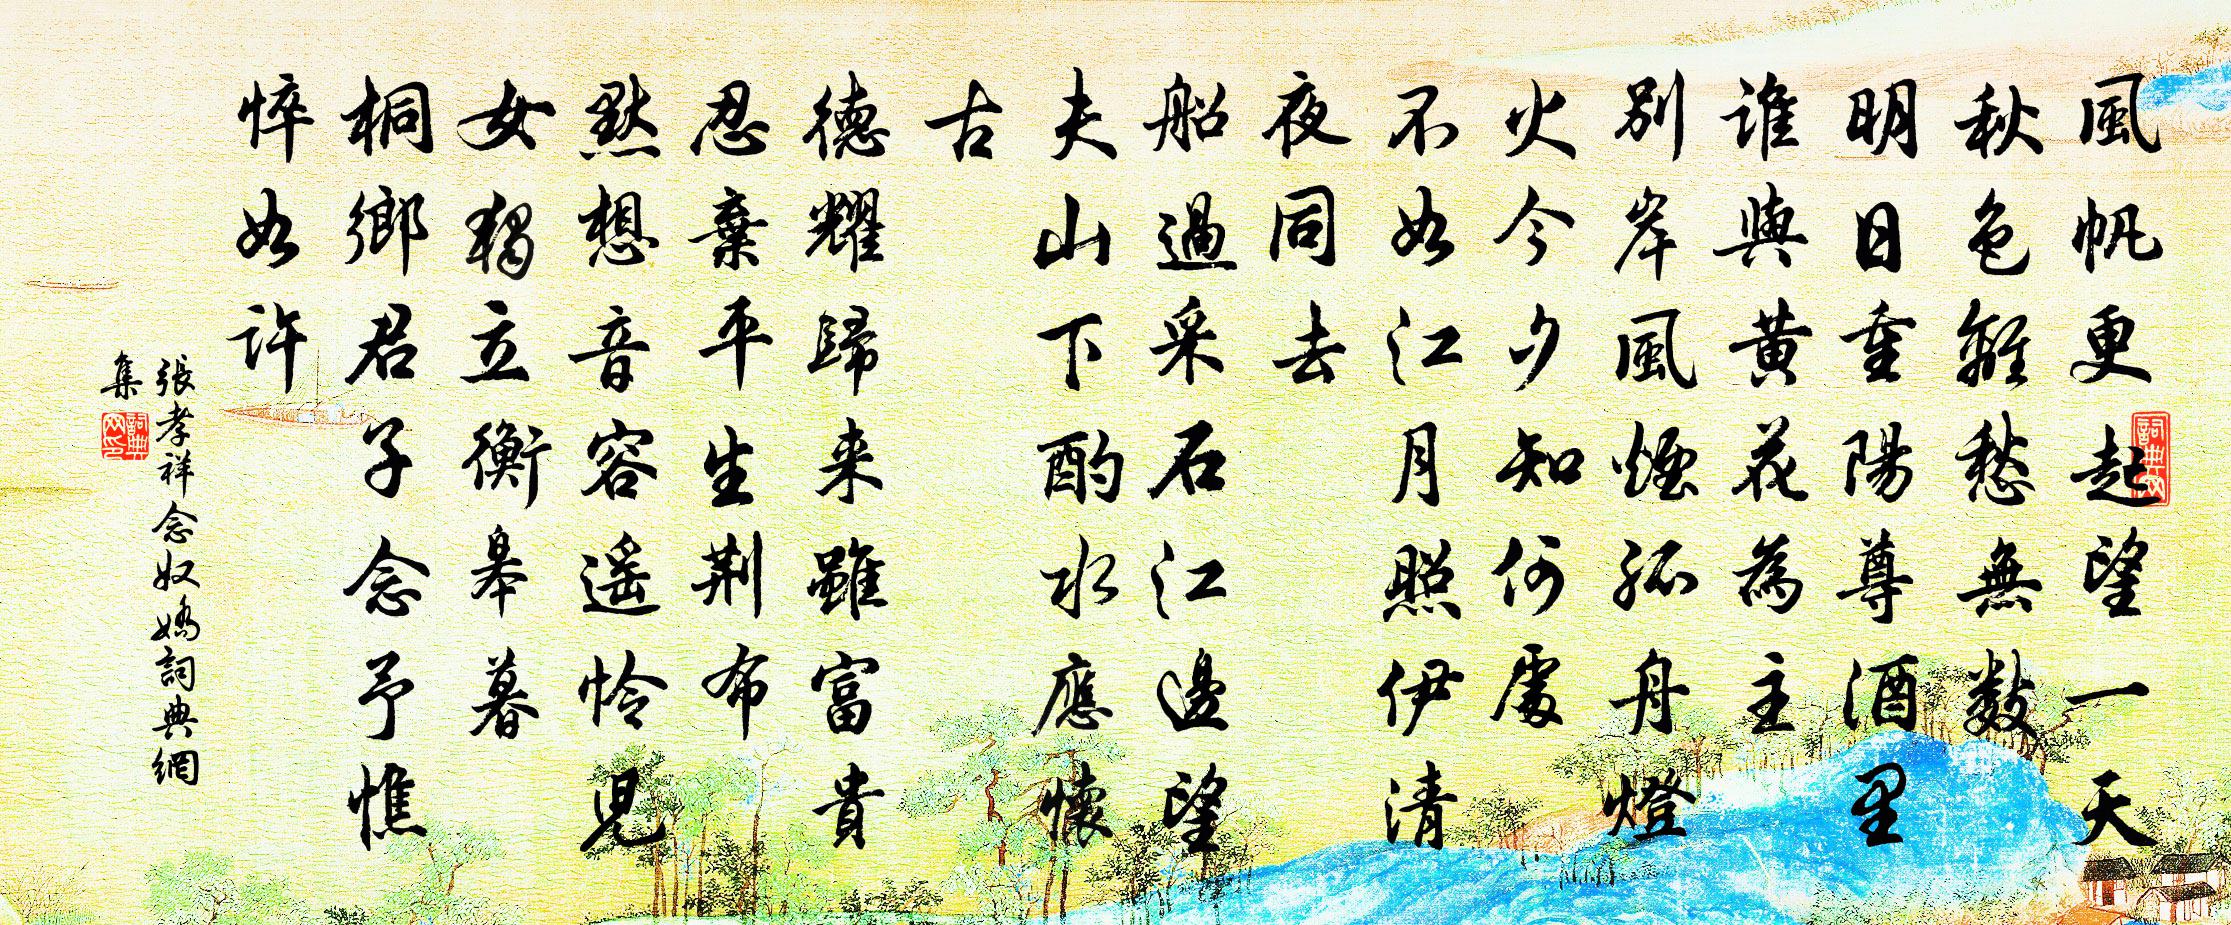 風帆更起望一天
秋色離愁無數
明日重陽尊酒里
誰與黄花為主
別岸風煙孤舟燈
火今夕知何處
不如江月照伊清
夜同去
船過采石江邊望
夫山下酌水應懷
古
德耀歸来雖富貴
忍棄平生荆布
默想音容遥怜兒
女獨立衡皋暮
桐鄉君子念予憔
悴如許
張孝祥念奴嬌詞典網
集
詞典网
詞典网印